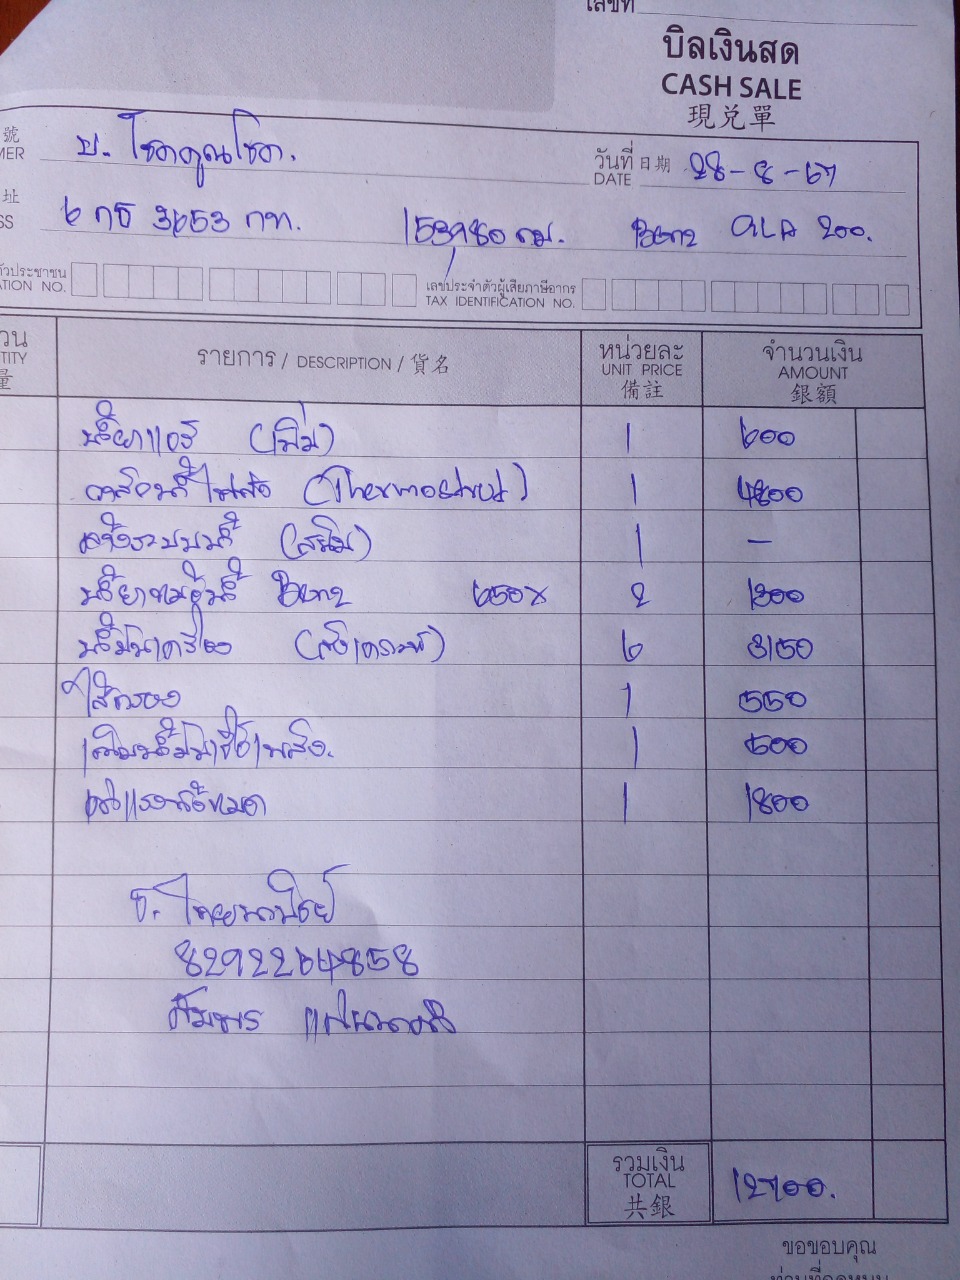 เลขที่
บิลเงินสด
CASH SALE
現兌單
號 MER บ. โชคคูณโชค.
วันที่ 日期 DATE 28-8-67
址 SS 6 กธ 3653 กท. 153980 กม. Benz GLA 200.
ัวประชาชน
TION NO.
เลขประจำตัวผู้เสียภาษีอากร
TAX IDENTIFICATION NO.
วน TITY 量
รายการ / DESCRIPTION / 貨名
หน่วยละ UNIT PRICE 備註
จำนวนเงิน AMOUNT 銀額
น้ำยาแอร์ (เพิ่ม) 1 600
วาล์วน้ำ (Thermostat) 1 4800
ล้างระบบน้ำ (สนิม) 1 –
น้ำยาหม้อน้ำ Benz 650x 2 1300
น้ำมันเครื่อง (สังเคราะห์) 6 3150
ไส้กรอง 1 550
เติมน้ำมันเชื้อเพลิง. 1 500
ค่าแรงทั้งหมด 1 1800
ธ. ไทยพาณิชย์
8292264858
รวมเงิน TOTAL 共銀 12700.
ขอขอบคุณ